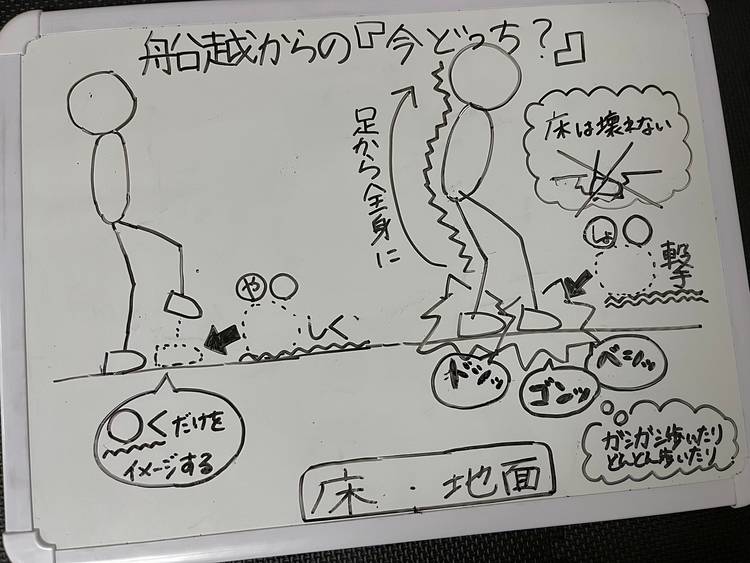 船越からの『今どっち?』
足から全身に
床は壊れない
しょ〇
撃手
や〇
しく
ドンッ
ゴンッ
ベシッ
〇くだけを
イメージする
ガシガシ歩いたり
どんどん歩いたり
床・地面